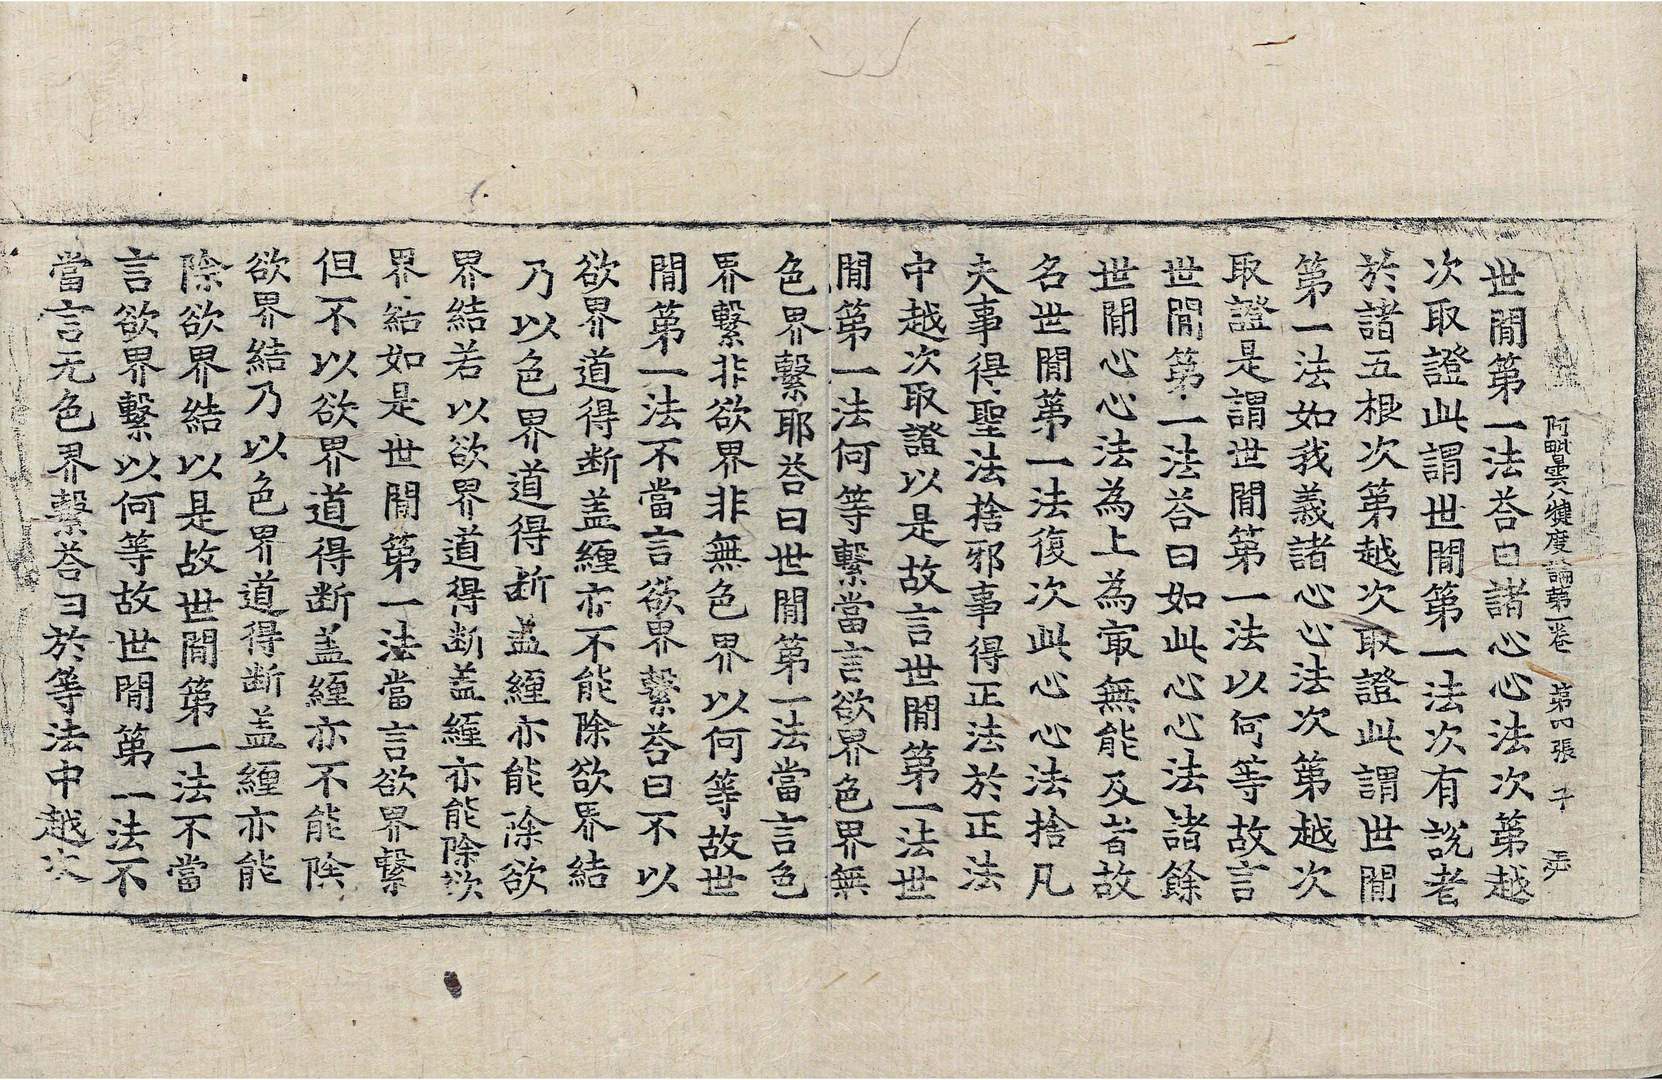 阿毗曇八犍度論第一卷 第四張 子
世間第一法荅曰諸心心法次第越
次取證此謂世間第一法次有說者
於諸五根次第越次取證此謂世間
第一法如我義諸心心法次第越次
取證是謂世間第一法以何等故言
世間第一法荅曰如此心心法諸餘
世間心心法為上為冣無能及者故
名世間第一法復次此心心法捨凡
夫事得聖法捨邪事得正法於正法
中越次取證以是故言世間第一法世
間第一法何等繫當言欲界色界無
色界繫耶荅曰世間第一法當言色
界繫非欲界非無色界以何等故世
間第一法不當言欲界繫荅曰不以
欲界道得断盖纏亦不能除欲界結
乃以色界道得断盖纏亦能除欲
界結若以欲界道得断盖纏亦能除欲
界結如是世間第一法當言欲界繫
但不以欲界道得断盖纏亦不能除
欲界結乃以色界道得断盖纏亦能
除欲界結以是故世間第一法不當
言欲界繫以何等故世間第一法不
當言无色界繫荅曰於等法中越次